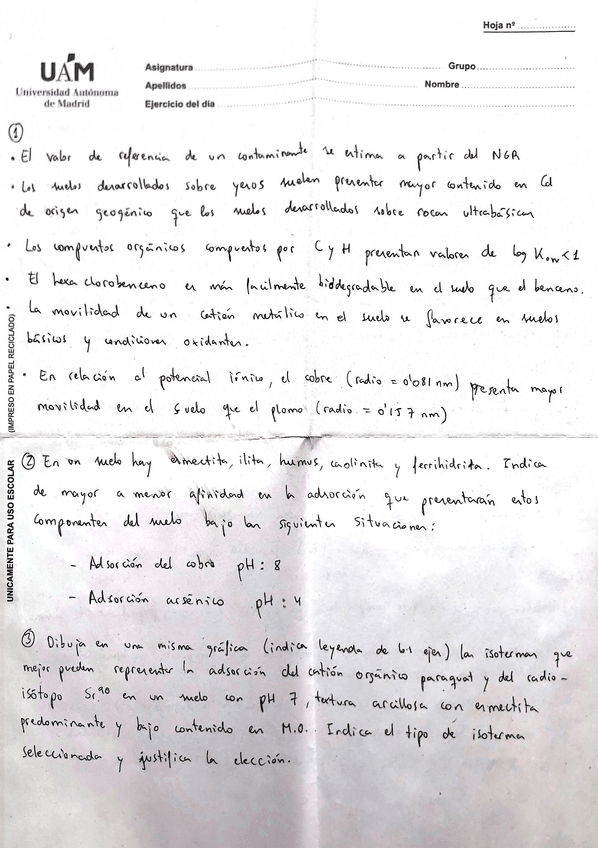 Hoja nº
UAM
Universidad Autónoma
de Madrid
Asignatura
Grupo
Apellidos
Nombre
Ejercicio del día
①
• El valor de referencia de un contaminante se estima a partir del NGR
• Los suelos desarrollados sobre yesos suelen presentar mayor contenido en Cd
de origen geogénico que los suelos desarrollados sobre rocas ultrabásicas
• Los compuestos orgánicos compuestos por C y H presentan valores de log Kow < 1
• El hexaclorobenceno es más facilmente biodegradable en el suelo que el benceno.
• La movilidad de un catión metálico en el suelo se favorece en suelos
básicos y condiciones oxidantes.
• En relación al potencial iónico, el cobre (radio = 0'081 nm) presenta mayor
movilidad en el suelo que el plomo (radio = 0'157 nm)
(IMPRESO EN PAPEL RECICLADO)
UNICAMENTE PARA USO ESCOLAR
② En un suelo hay esmectita, ilita, humus, caolinita y ferrihidrita. Indica
de mayor a menor afinidad en la adsorción que presentarán estos
componentes del suelo bajo las siguientes situaciones:
- Adsorción del cobre pH: 8
- Adsorción arsénico pH: 4
③ Dibuja en una misma gráfica (indica leyenda de los ejes) las isotermas que
mejor pueden representar la adsorción del catión orgánico paraquat y del radio-
isótopo Sr90 en un suelo con pH 7, textura arcillosa con esmectita
predominante y bajo contenido en M.O. Indica el tipo de isoterma
seleccionada y justifica la elección.